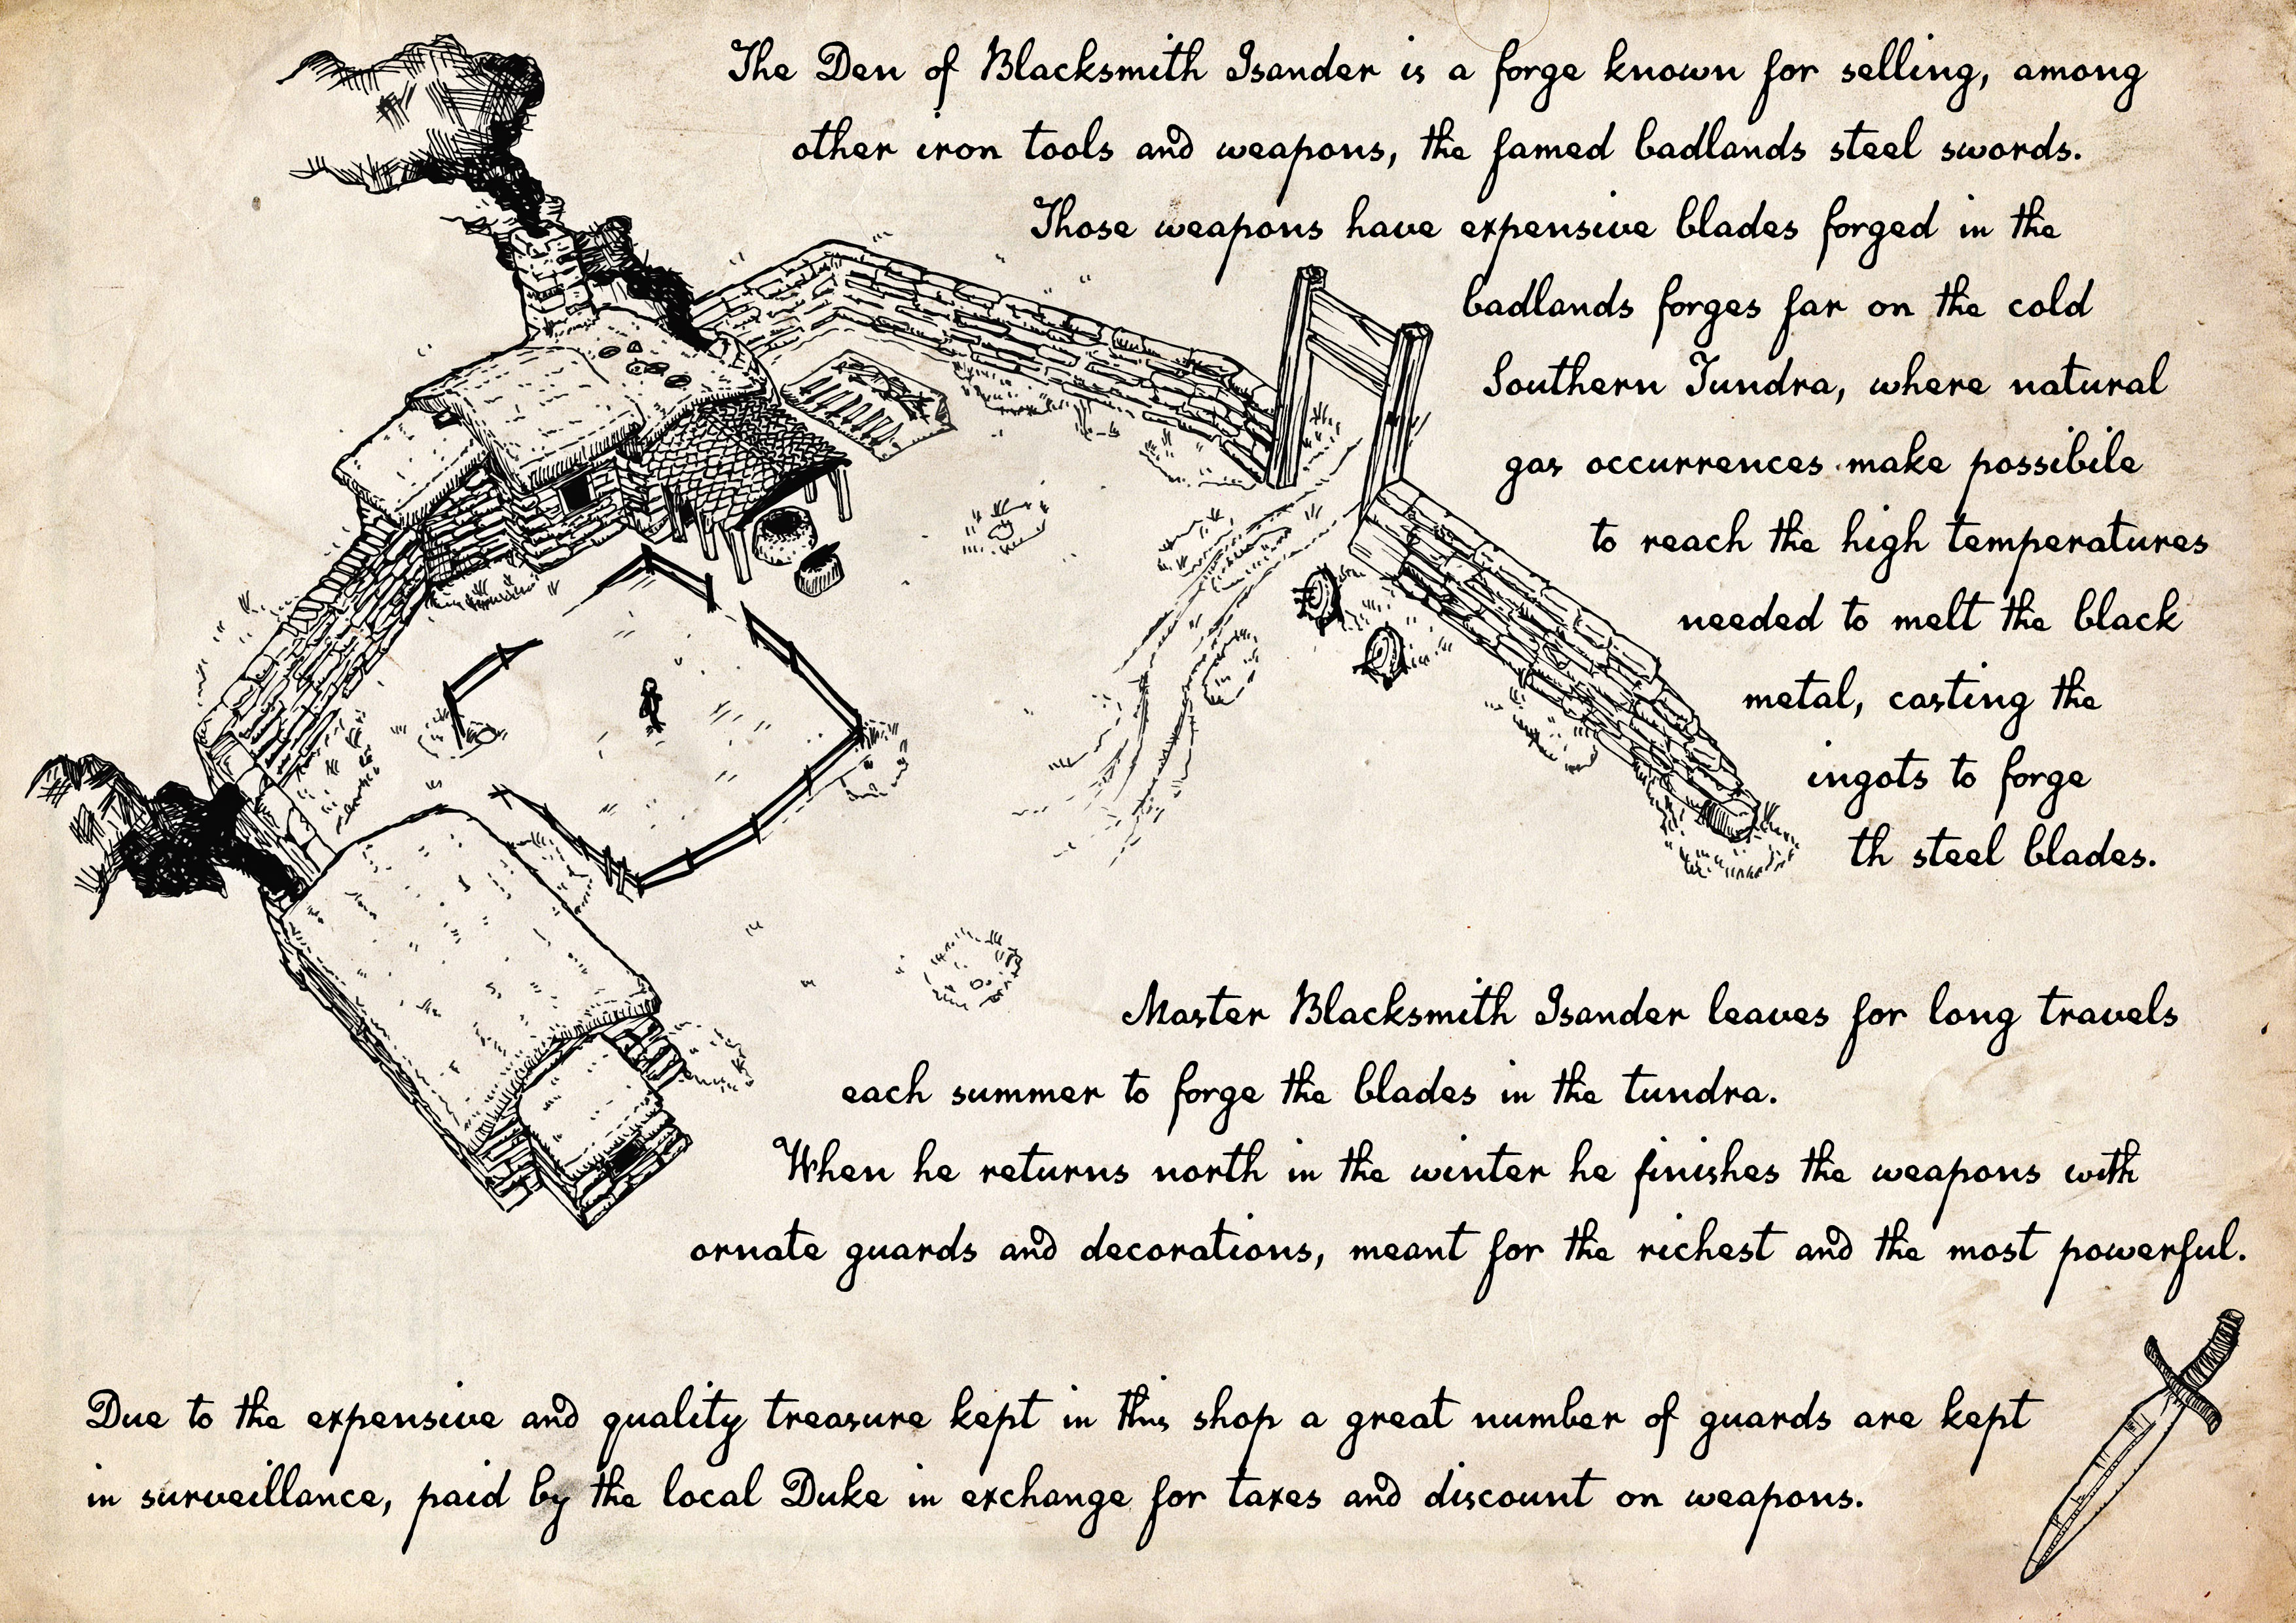 The Den of Blacksmith Isander is a forge known for selling, among
other iron tools and weapons, the famed badlands steel swords.
Those weapons have expensive blades forged in the
badlands forges far on the cold
Southern Tundra, where natural
gas occurrences make possibile
to reach the high temperatures
needed to melt the black
metal, casting the
ingots to forge
th steel blades.
Master Blacksmith Isander leaves for long travels
each summer to forge the blades in the tundra.
When he returns north in the winter he finishes the weapons with
ornate guards and decorations, meant for the richest and the most powerful.
Due to the expensive and quality treasure kept in this shop a great number of guards are kept
in surveillance, paid by the local Duke in exchange for taxes and discount on weapons.